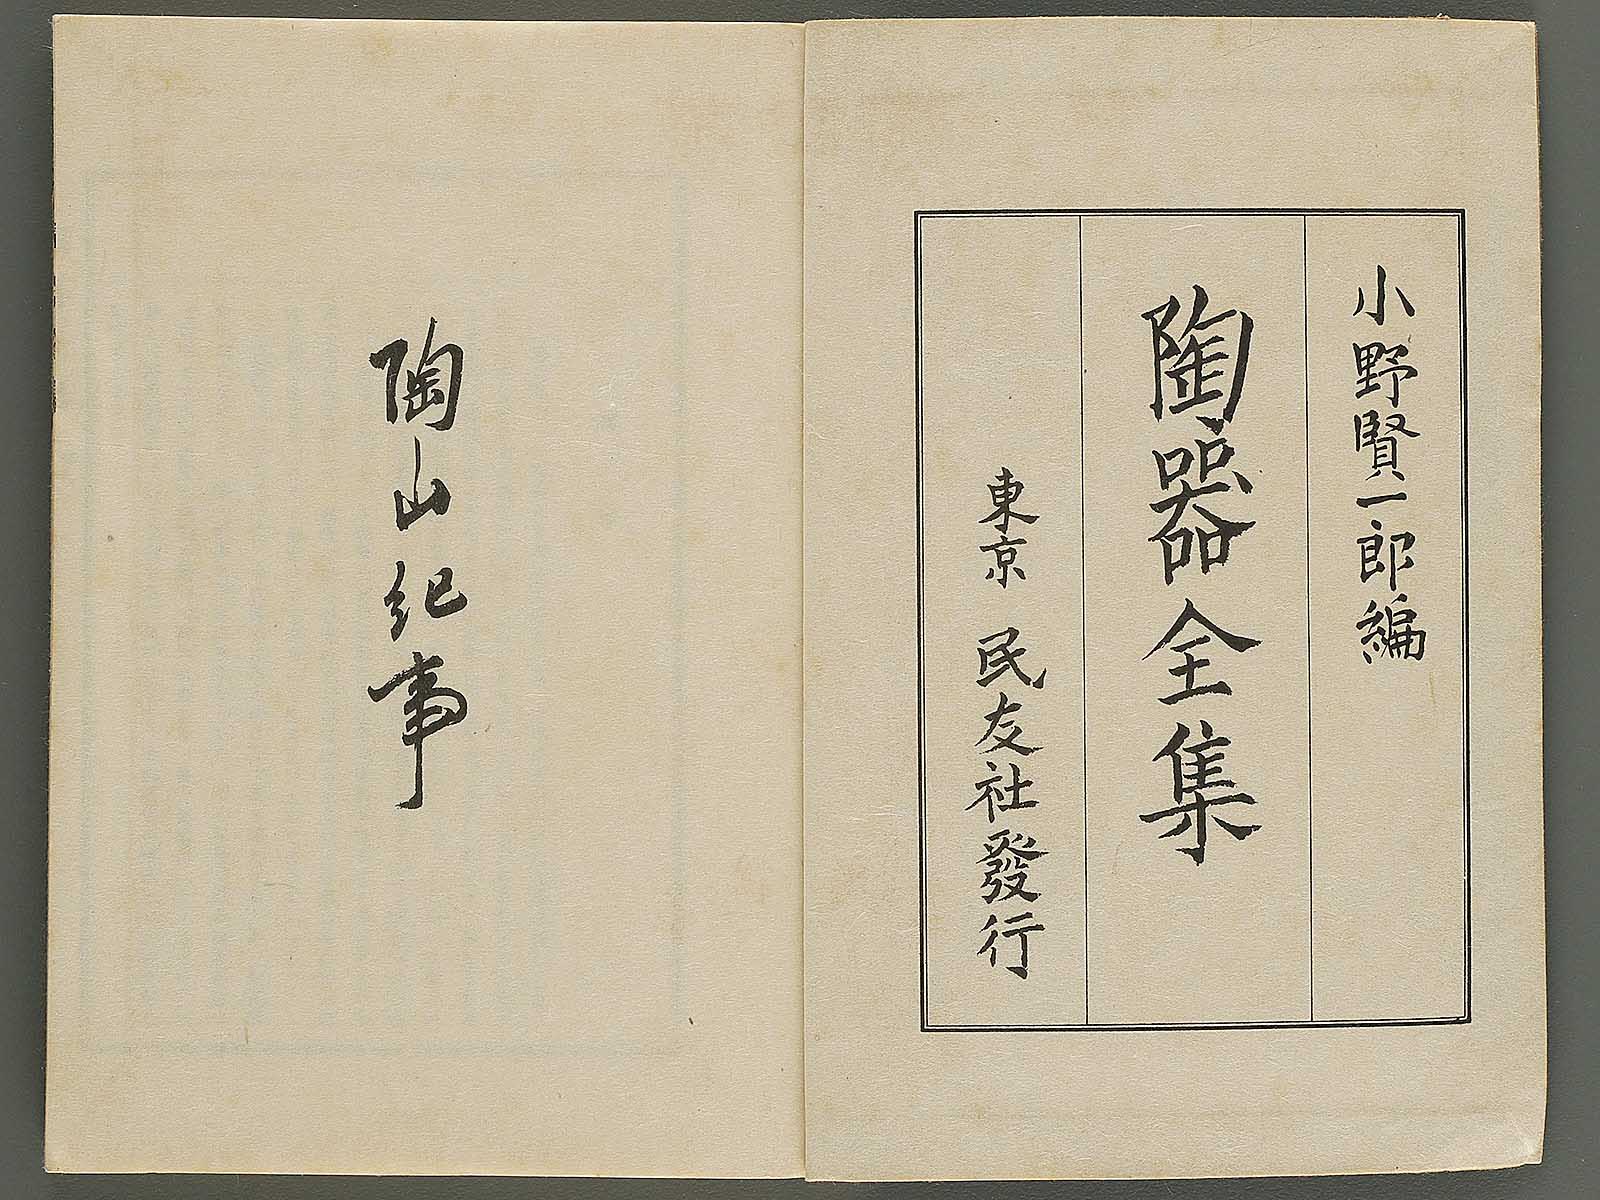 小野賢一郎編
陶器全集
東京 民友社發行
陶山紀事